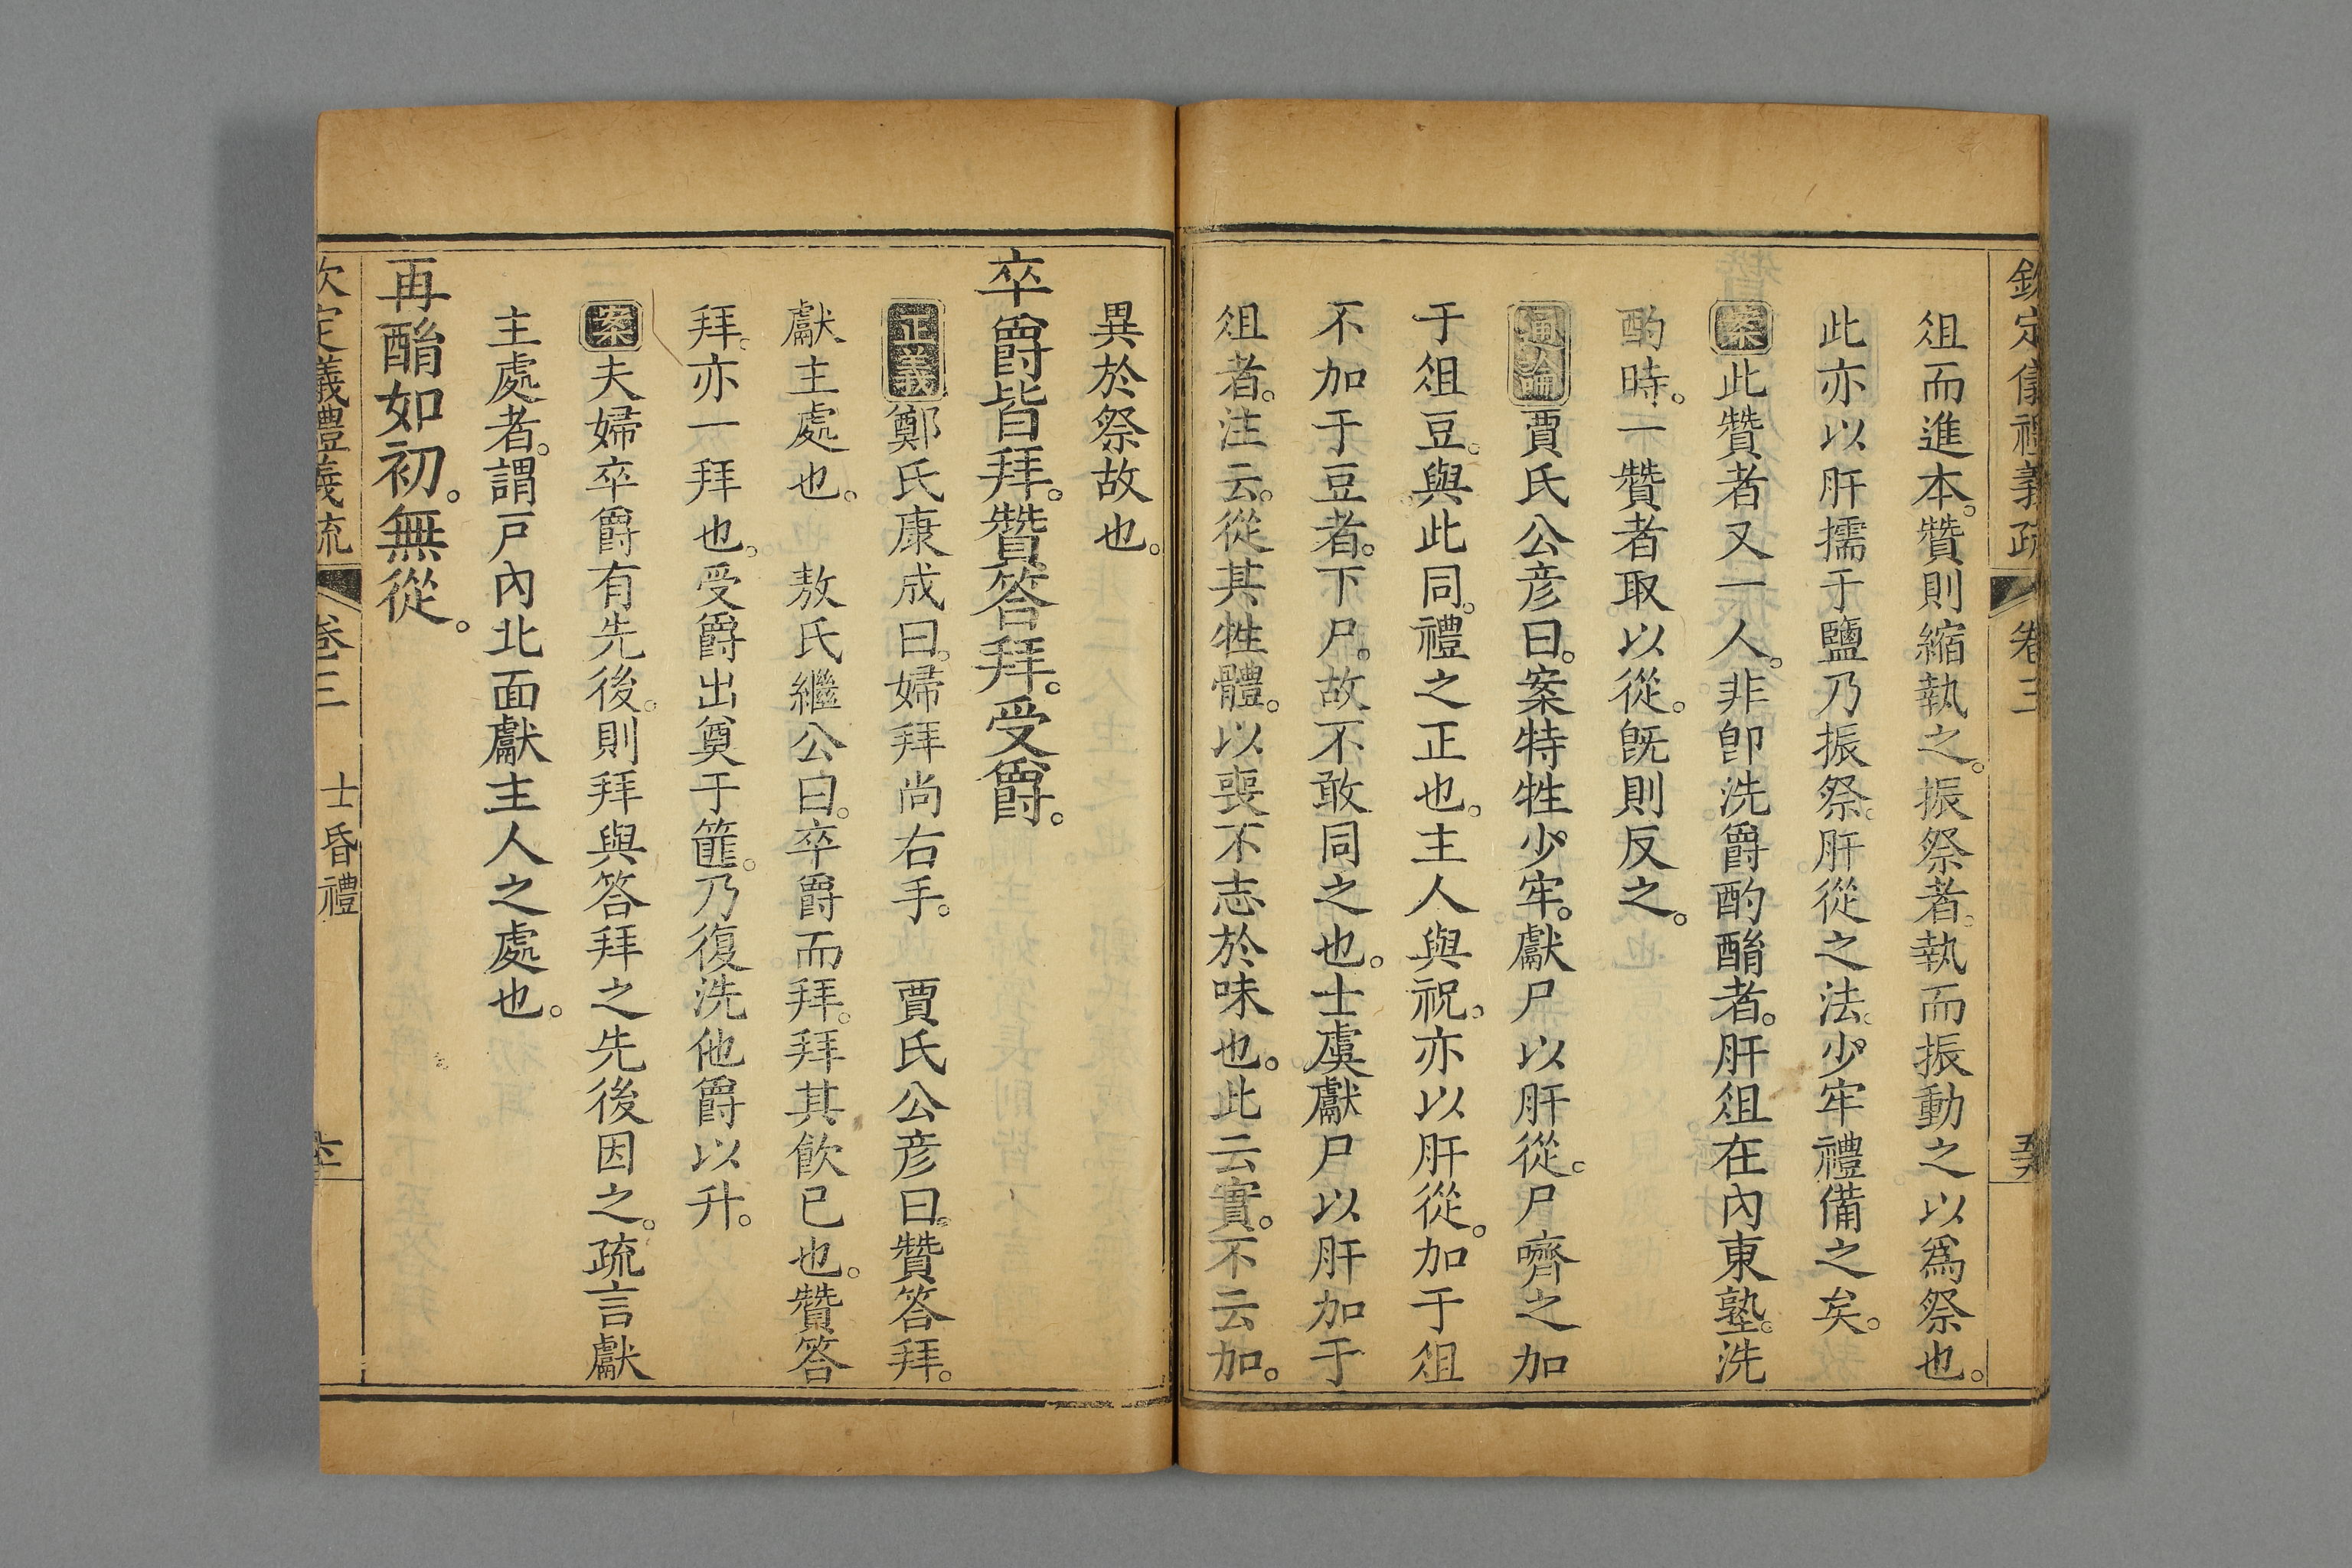 欽定儀禮義疏 卷三
俎而進本。贊則縮執之。振祭者。執而振動之以爲祭也。
此亦以肝擩于鹽乃振祭。肝從之法。少牢禮備之矣。
案此贊者又一人。非卽洗爵酌酳者。肝俎在內東塾。洗
酌時。一贊者取以從。旣則反之。
通論賈氏公彦曰。案特牲少牢。獻尸以肝從。尸嚌之加
于俎豆。與此同。禮之正也。主人與祝。亦以肝從。加于俎
不加于豆者。下尸。故不敢同之也。士虞獻尸以肝加于
俎者。注云。從其牲體。以喪不志於味也。此云實。不云加。
異於祭故也。
卒爵皆拜。贊答拜。受爵。
正義鄭氏康成曰。婦拜尚右手。 賈氏公彦曰。贊答拜。
獻主處也。 敖氏繼公曰。卒爵而拜。拜其飮已也。贊答
拜。亦一拜也。受爵出奠于篚。乃復洗他爵以升。
案夫婦卒爵有先後。則拜與答拜之先後因之。疏言獻
主處者。謂戸內北面獻主人之處也。
再酳如初。無從。
欽定儀禮義疏 卷三 士昏禮